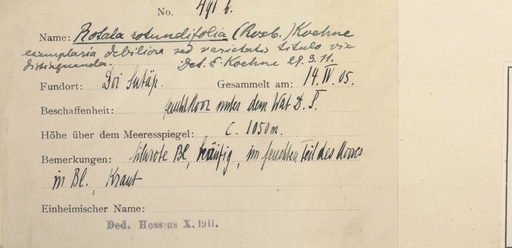 No. 491 b.
Name: Rotala rotundifolia (Roxb.) Koehne
exemplaria debiliora sed varietatis titulo vix
distinguenda. Det. E. Koehne 29.3.11.
Fundort: Doi Sutäp. Gesammelt am: 14. IV. 05.
Beschaffenheit: unter dem Wat D. S.
Höhe über dem Meeresspiegel: c. 1050 m.
Bemerkungen: Bl, häufig, im feuchten Teil des Moores
in Bl. Kraut
Einheimischer Name:
Ded. Hosseus X. 1911.